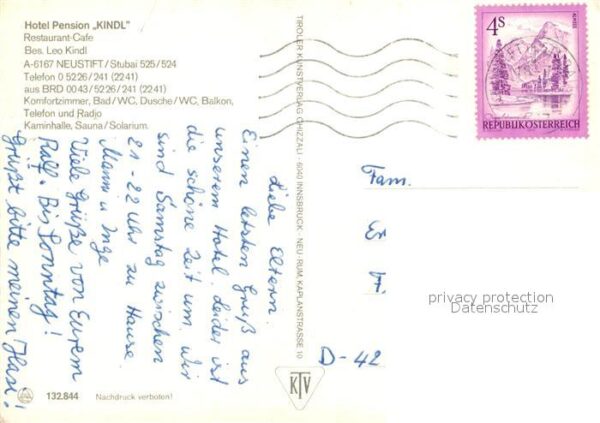 Hotel Pension „KINDL"
Restaurant-Cafe
Bes. Leo Kindl
A-6167 NEUSTIFT/Stubai 525/524
Telefon 0 5226/241 (22 41)
aus BRD 0043/5226/241 (22 41)
Komfortzimmer, Bad/WC, Dusche/WC, Balkon,
Telefon und Radio
Kaminhalle, Sauna/Solarium.
Liebe Eltern.
Einen letzten Gruß aus
unserem Hotel. Leider ist
die schöne Zeit um. Wir
sind Samstag zwischen
21-22 Uhr zu Hause.
Mann u Inge
Viele Grüße von Eurem
Ralf. Bis Sonntag!
Grüßt bitte meinen Hasi!
TIROLER KUNSTVERLAG CHIZZALI · 6040 INNSBRUCK - NEU-RUM, KAPLANSTRASSE 10
4S
ALMSEE
REPUBLIK ÖSTERREICH
Fam.
D-42
privacy protection
Datenschutz
132.844
Nachdruck verboten!
KTV